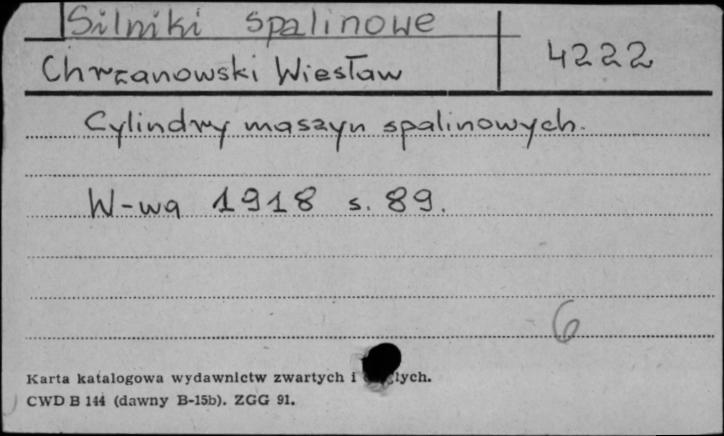 Silniki spalinowe
Chrzanowski Wiesław
4222
Cylindry maszyn spalinowych.
W-wa 1918 s. 89.
6
Karta katalogowa wydawnictw zwartych i
CWD B 144 (dawny B-15b). ZGG 91.